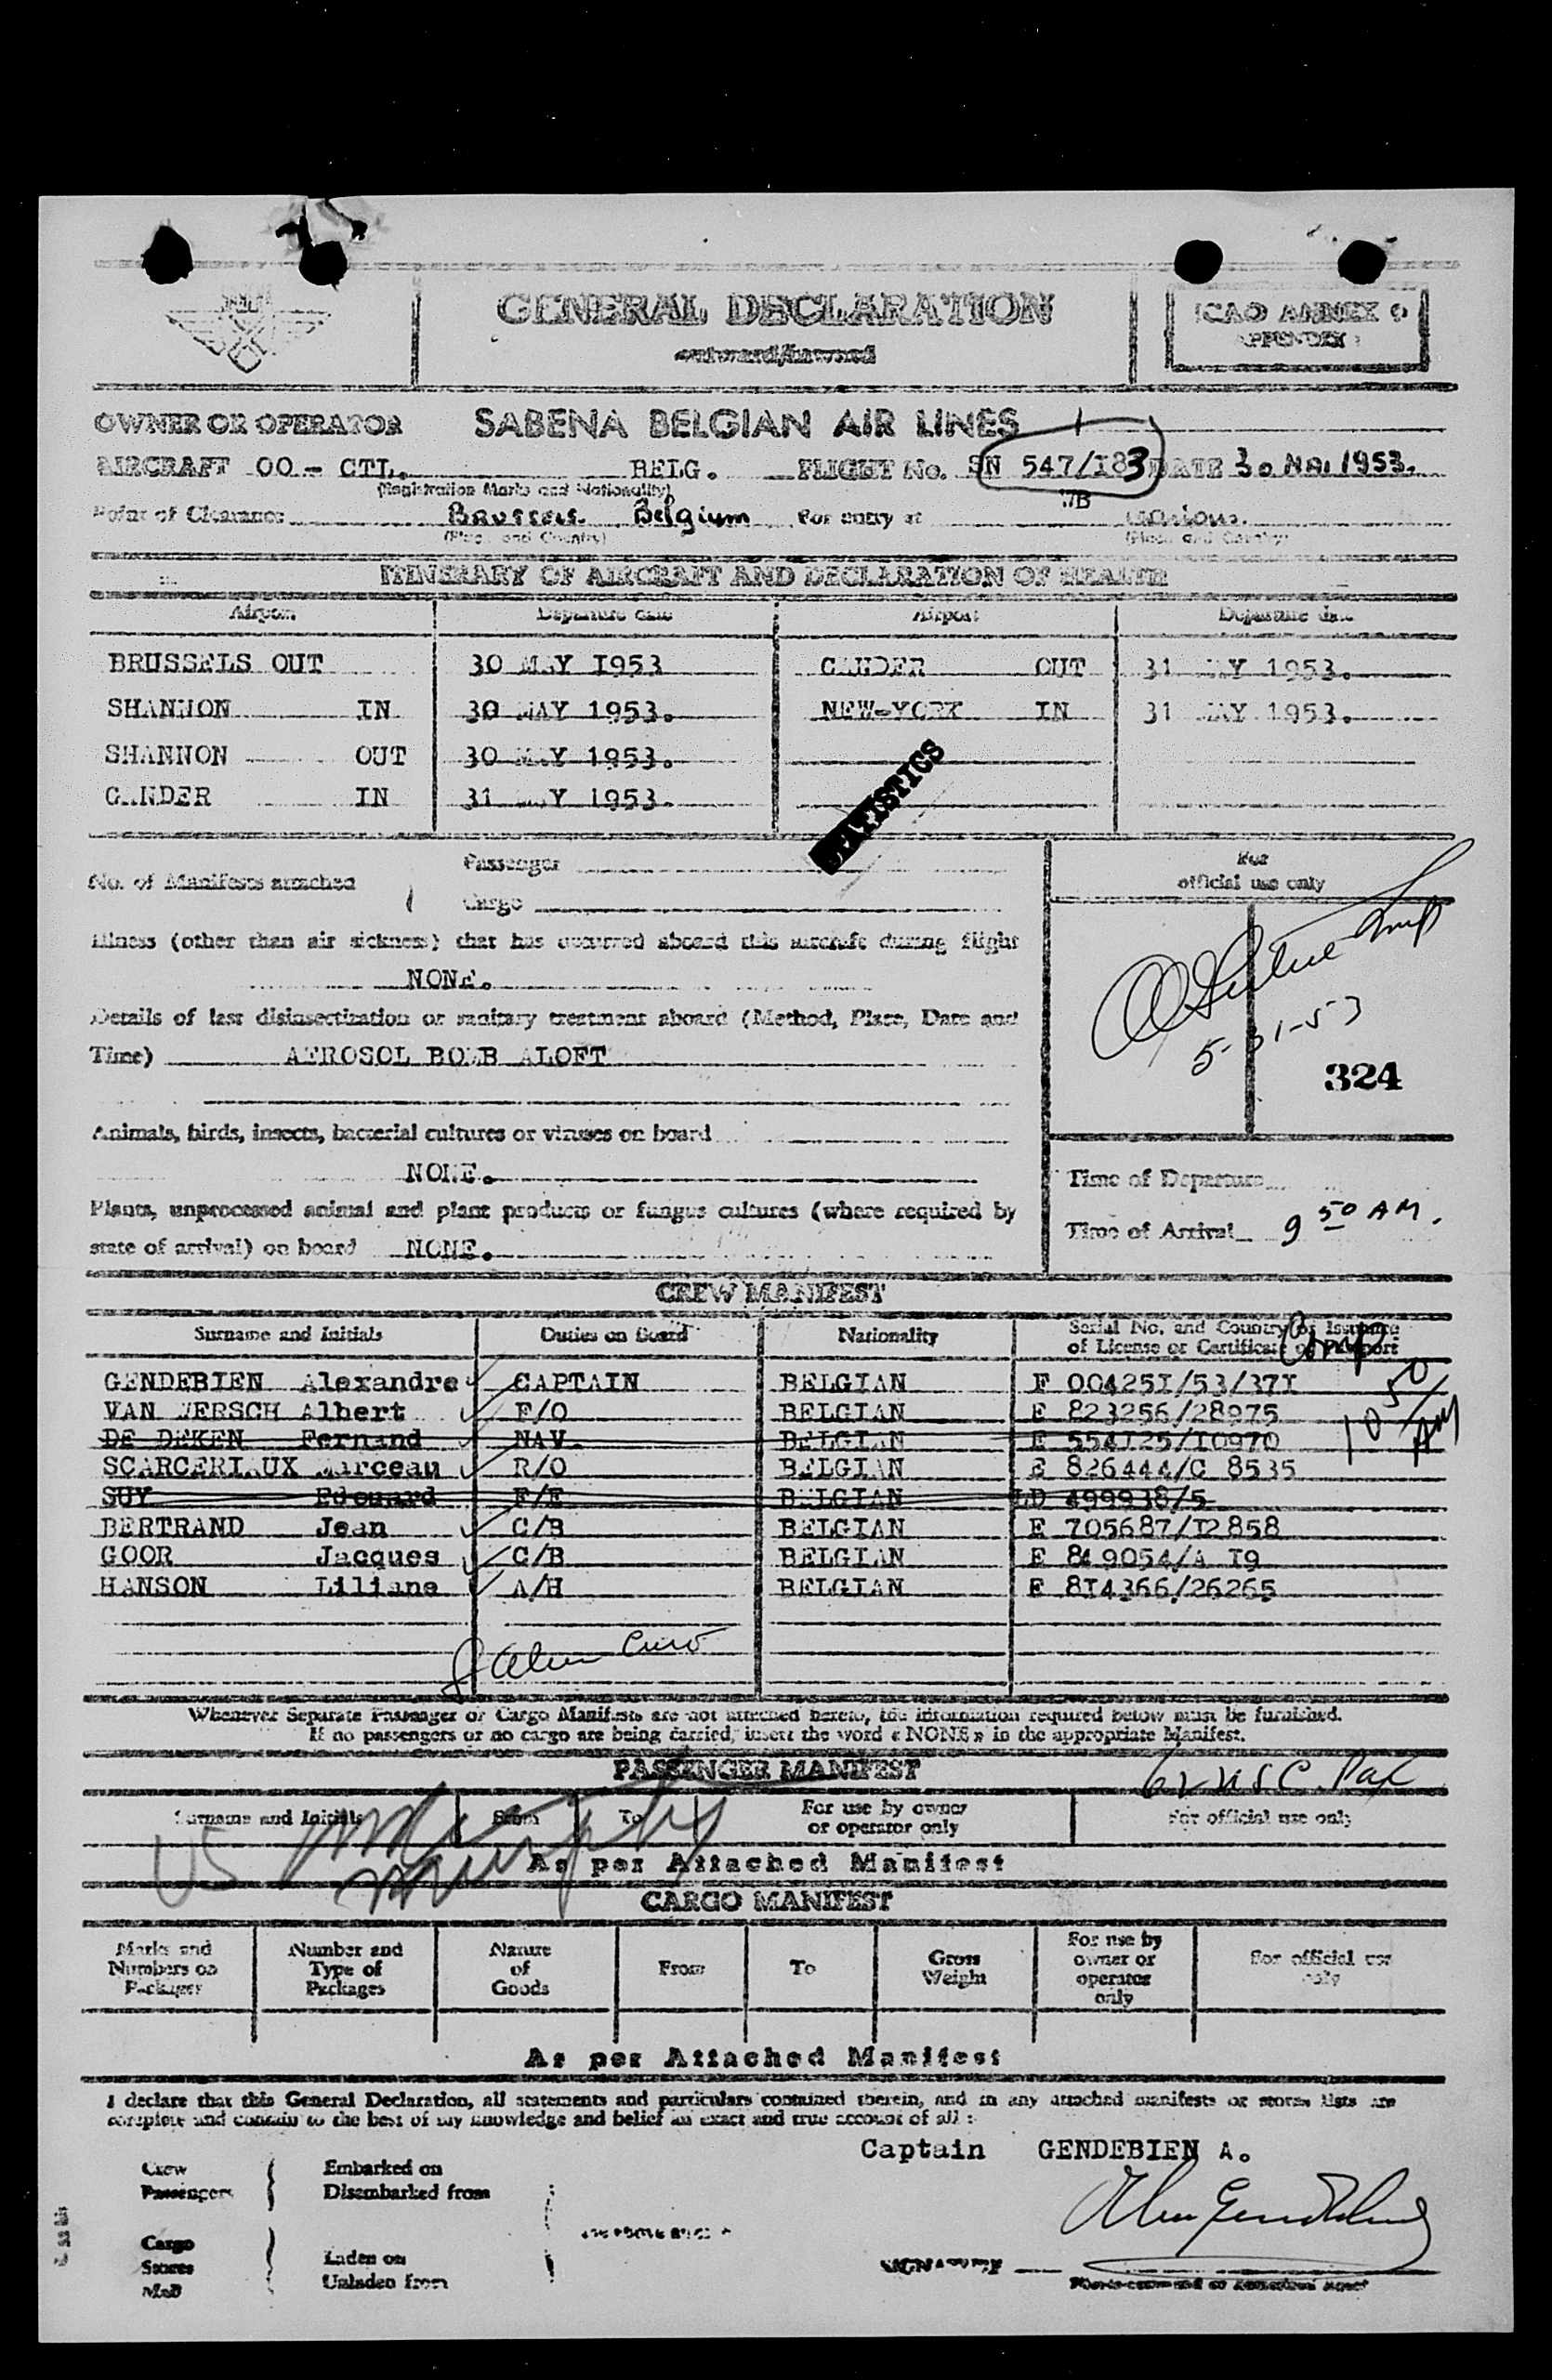 GENERAL DECLARATION
outward/inward
ICAO ANNEX 9
APPENDIX 1
OWNER OR OPERATOR SABENA BELGIAN AIR LINES
AIRCRAFT OO - CTL. BELG. FLIGHT No. SN 547/I83 DATE 30 Mai 1953.
(Registration Marks and Nationality) 7B
Point of Clearance Brussels. Belgium For entry at
(Place and Country) (Place and Country)
ITINERARY OF AIRCRAFT AND DECLARATION OF HEALTH
Airport Departure date Airport Departure date
BRUSSELS OUT 30 MAY I953 GANDER OUT 31 MAY 1953.
SHANNON IN 30 MAY 1953. NEW-YORK IN 31 MAY 1953.
SHANNON OUT 30 MAY 1953.
GANDER IN 31 MAY 1953.
STATISTICS
No. of Manifests attached Passenger
Cargo
For
official use only
Illness (other than air sickness) that has occurred aboard this aircraft during flight
NONE.
Details of last disinsectization or sanitary treatment aboard (Method, Place, Date and
Time) AEROSOL BOMB ALOFT
5-31-53
324
Animals, birds, insects, bacterial cultures or viruses on board
NONE.
Time of Departure
Plants, unprocessed animal and plant products or fungus cultures (where required by
state of arrival) on board NONE.
Time of Arrival 9 50 AM.
CREW MANIFEST
Surname and Initials Duties on Board Nationality Serial No. and Country of Issuance
of License or Certificate or Passport
GENDEBIEN Alexandre CAPTAIN BELGIAN F 00425I/53/37I
VAN WERSCH Albert F/O BELGIAN E 823256/28975
10 50 AM
DE DEKEN Fernand NAV. BELGIAN E 554I25/I0970
SCARCERIAUX Marceau R/O BELGIAN E 826444/C 8535
SUY Edouard F/E BELGIAN LD 499938/5
BERTRAND Jean C/B BELGIAN E 705687/I2858
GOOR Jacques C/B BELGIAN E 819054/A I9
HANSON Liliane A/H BELGIAN E 8I4366/26265
Whenever Separate Passenger or Cargo Manifests are not attached hereto, the information required below must be furnished.
If no passengers or no cargo are being carried, insert the word « NONE » in the appropriate Manifest.
PASSENGER MANIFEST
Surname and Initials From To For use by owner
or operator only For official use only
US
As per Attached Manifest
CARGO MANIFEST
Marks and
Numbers on
Packages Number and
Type of
Packages Nature
of
Goods From To Gross
Weight For use by
owner or
operator
only For official use
only
As per Attached Manifest
I declare that this General Declaration, all statements and particulars contained therein, and in any attached manifests or stores lists are
complete and contain to the best of my knowledge and belief an exact and true account of all :
Captain GENDEBIEN A.
Crew Embarked on
Passengers Disembarked from
Cargo
Stores Laden on
Mail Unladen from
SIGNATURE